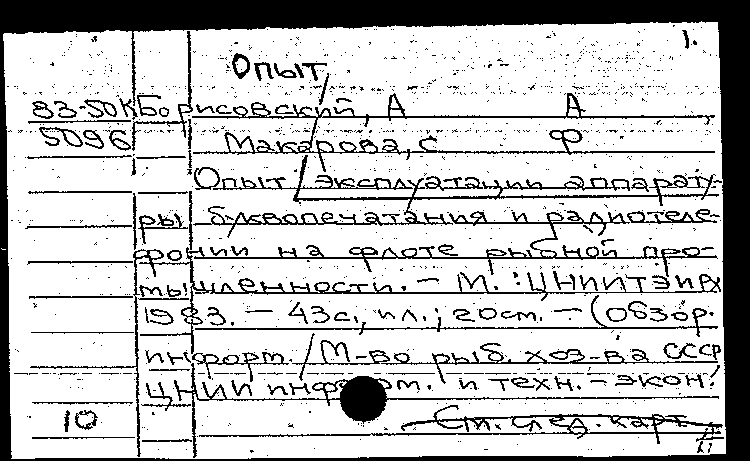 1.
Опыт
83-50К Борисовский, А А
5096 Макарова, С Ф
Опыт / эксплуатации аппарату-
ры буквопечатания и радиотеле-
фонии на флоте рыбной про-
мышленности. - М. : ЦНИИТЭИРХ
1983. - 43с., ил.; 20см. - (Обзор.
информ. / М-во рыб. хоз-ва СССР
ЦНИИ информ. и техн.-экон.
10 См. след. карт.